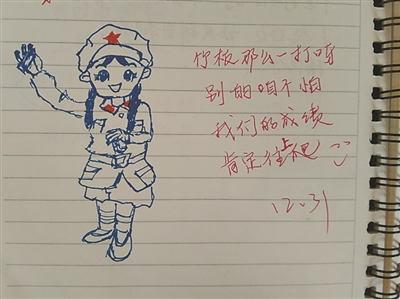 竹板那么一打呀
别的咱不怕
我们的成绩
肯定往上爬
12.31